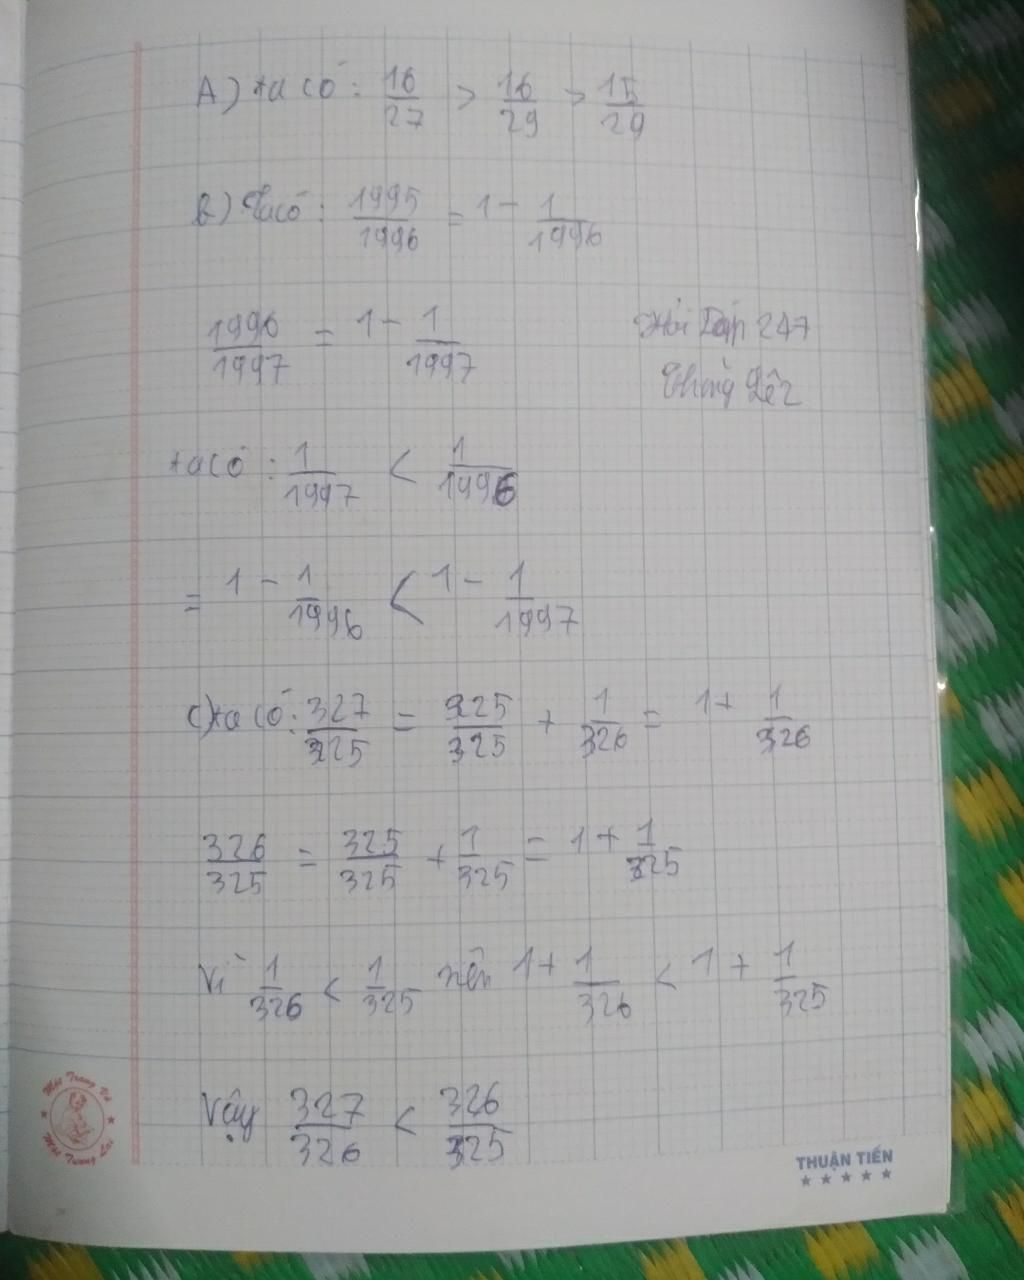 A) ta có: 16/27 > 16/29 > 15/29
B) Ta có: 1995/1996 = 1 - 1/1996
1996/1997 = 1 - 1/1997
Hỏi Đáp 247
ta có: 1/1997 < 1/1996
= 1 - 1/1996 < 1 - 1/1997
c) ta có: 327/325 = 325/325 + 1/326 = 1 + 1/326
326/325 = 325/325 + 1/325 = 1 + 1/325
Vì 1/326 < 1/325 nên 1 + 1/326 < 1 + 1/325
Vậy 327/326 < 326/325
Một Trang Vở
Một Tương Lai
THUẬN TIẾN